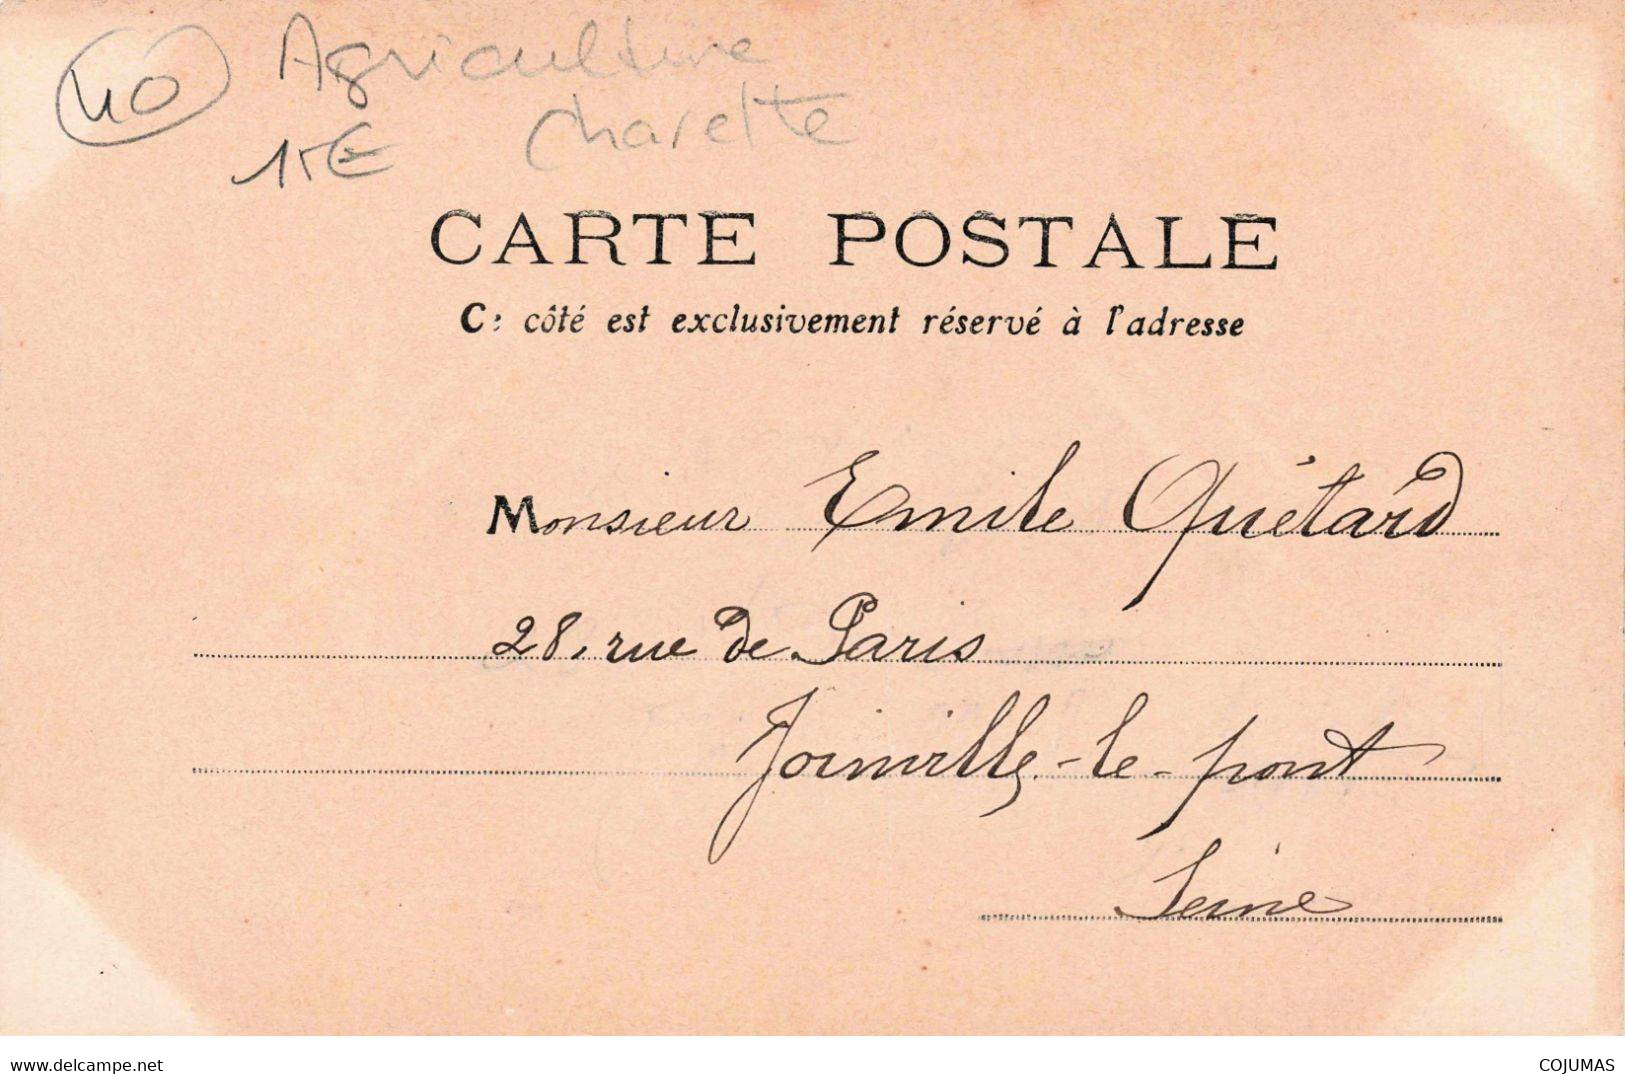 40 Agriculture
charette
15€
CARTE POSTALE
Ce côté est exclusivement réservé à l'adresse
Monsieur Emile Quétard
28, rue de Paris
Joinville-le-pont
Seine
www.delcampe.net COJUMAS